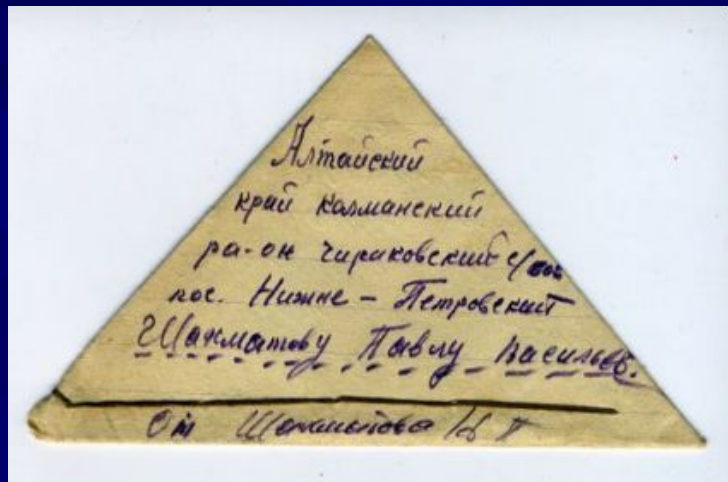 Алтайский
край калманский
ра-он чириковский с/сов
пос. Нижне - Петровский
Шахматову Павлу Васильев.
От Шахматова